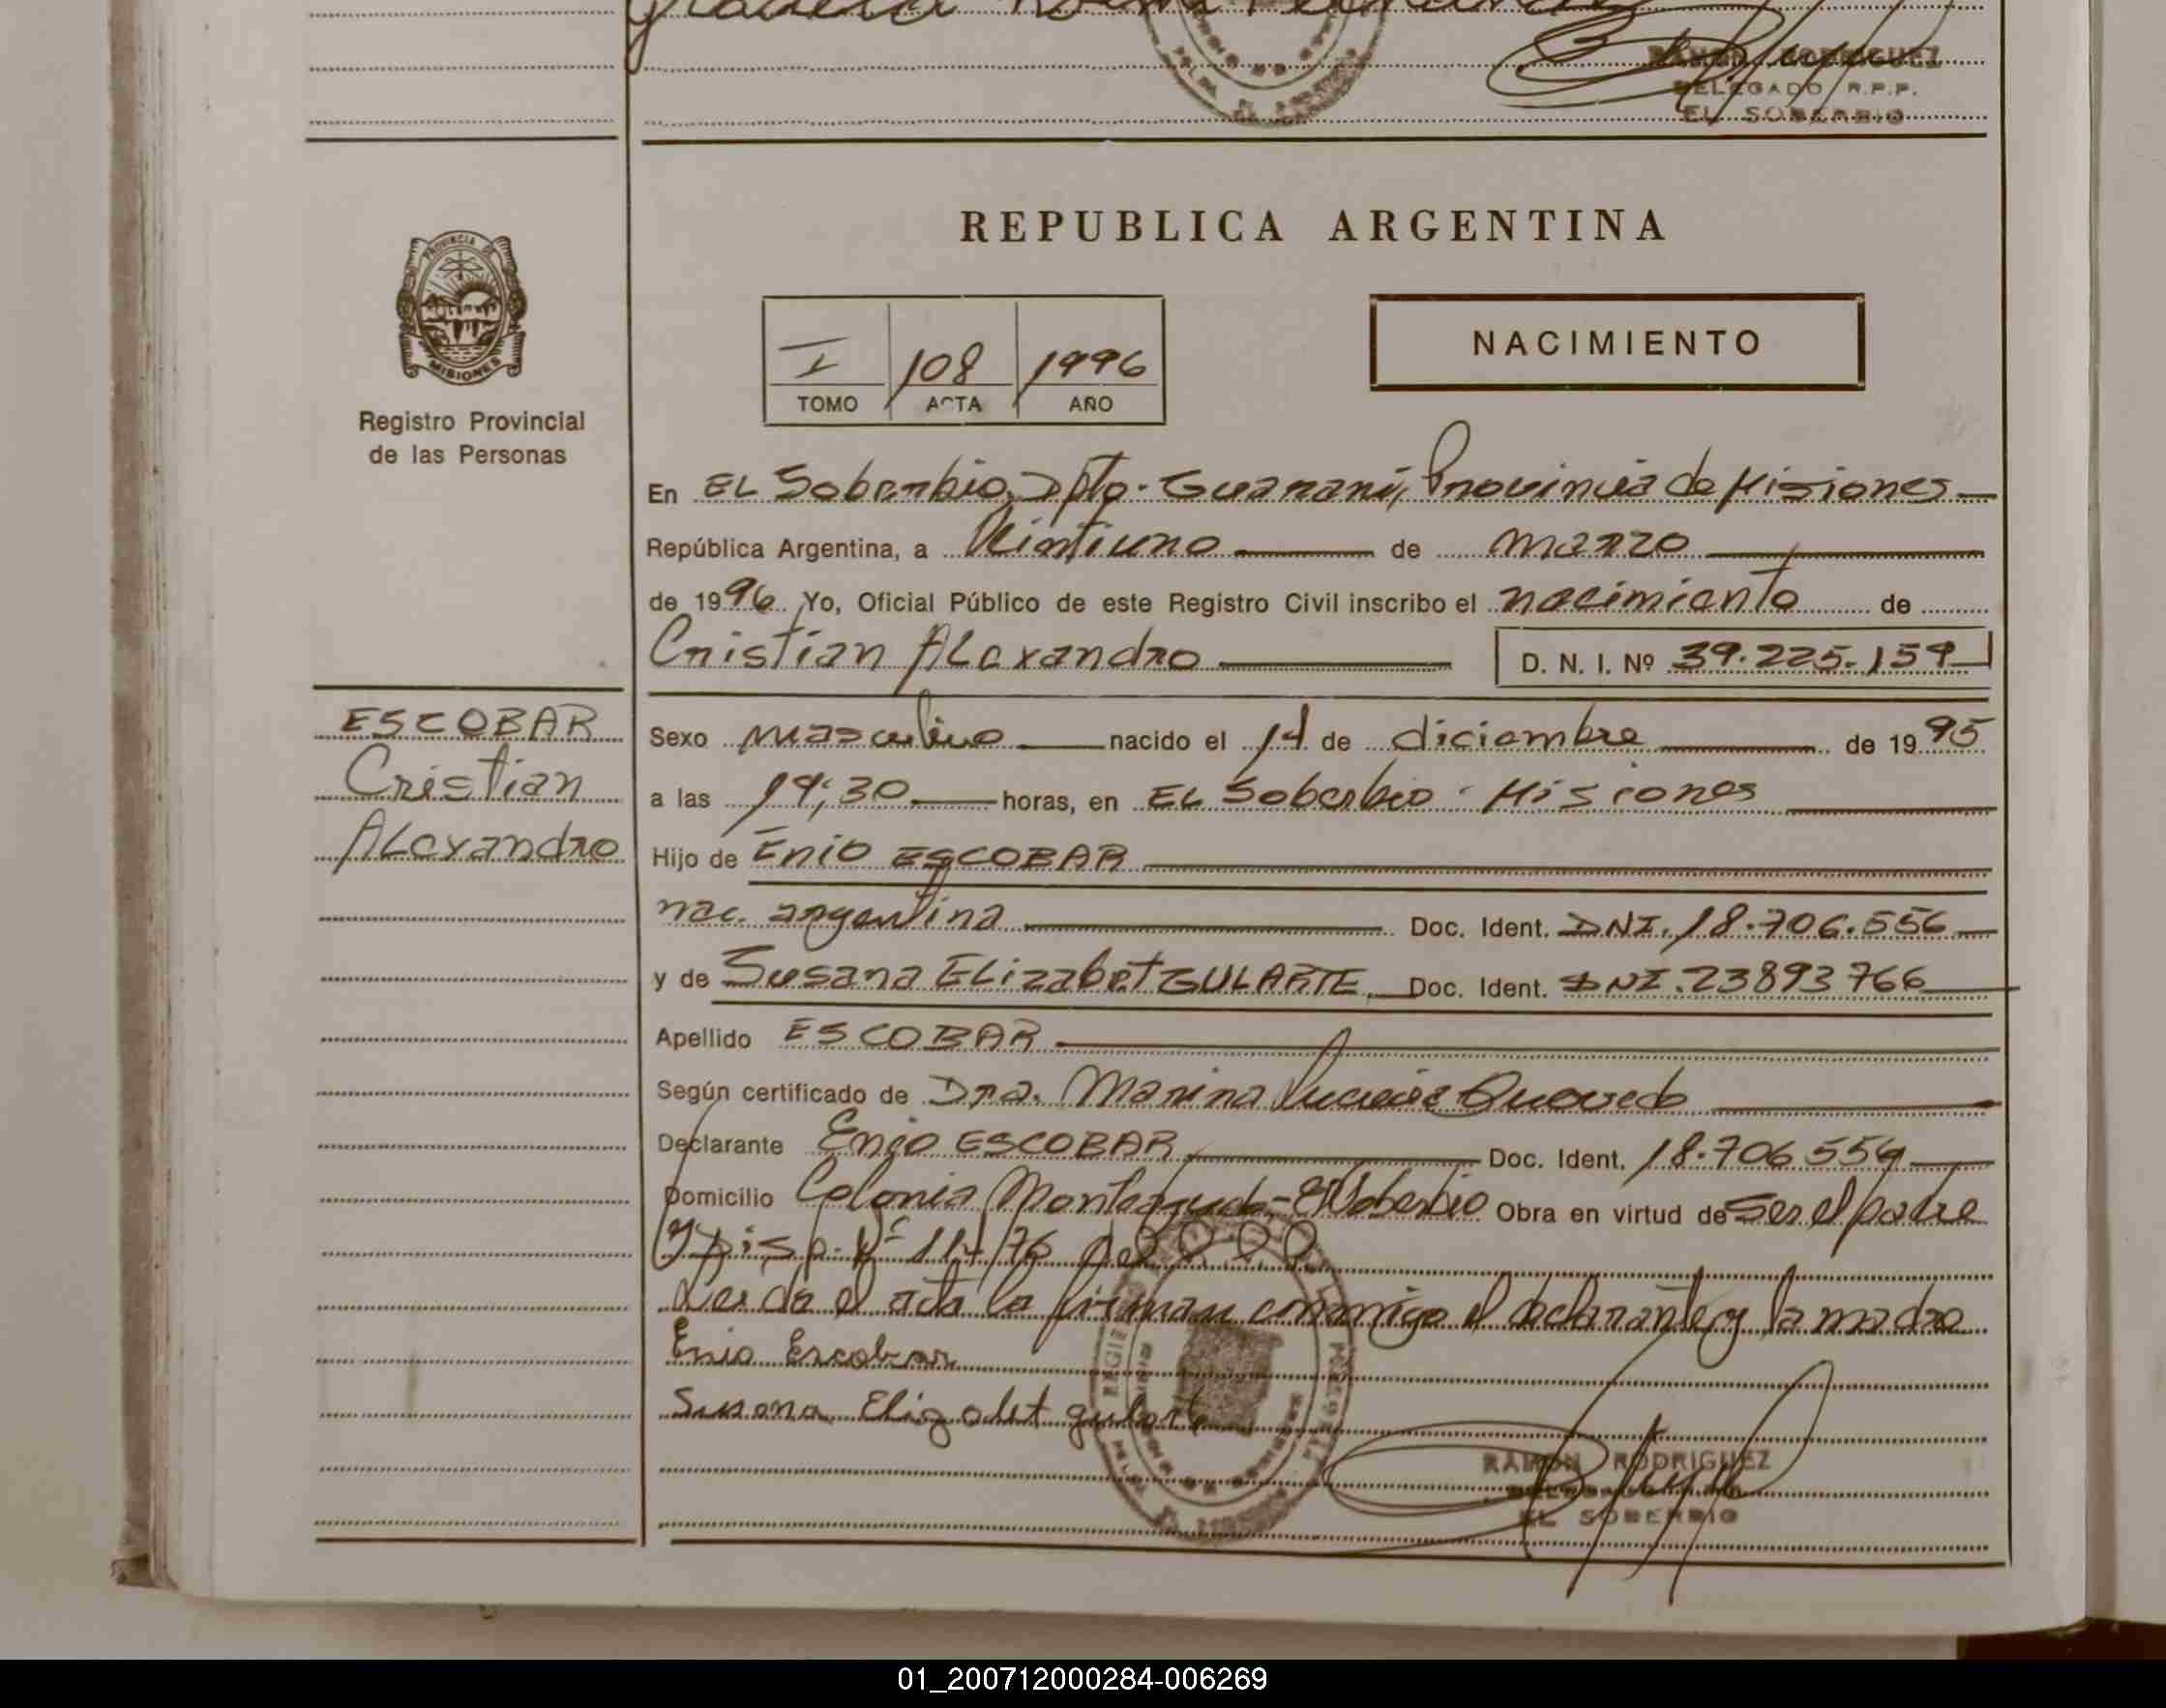 RAMON RODRIGUEZ
DELEGADO R.P.P.
EL SOBERBIO
REPUBLICA ARGENTINA
PROVINCIA DE
MISIONES
Registro Provincial
de las Personas
I 108 1996
TOMO ACTA AÑO
NACIMIENTO
En EL Soberbio, Dpto. Guaraní, Provincia de Misiones
República Argentina, a Vintiuno de marzo
de 1996 Yo, Oficial Público de este Registro Civil inscribo el nacimiento de
Cristian ALexandro D. N. I. Nº 39.225.159
ESCOBAR
Cristian
ALexandro
Sexo masculino nacido el 14 de diciembre de 1995
a las 19,30 horas, en EL Soberbio - Misiones
Hijo de Enio ESCOBAR
nac. argentina Doc. Ident. DNI. 18.706.556
y de Susana ELizabet GULARTE Doc. Ident. DNI. 23893766
Apellido ESCOBAR
Según certificado de Dra. Marina Quevedo
Declarante Enio ESCOBAR Doc. Ident. 18.706 556
Domicilio Colonia Monteagudo - El Soberbio Obra en virtud de ser el padre
Leida el acta la firman conmigo el declarante y la madre
Enio Escobar
Susana Elizabet gularte
RAMON RODRIGUEZ
EL SOBERBIO
01_200712000284-006269